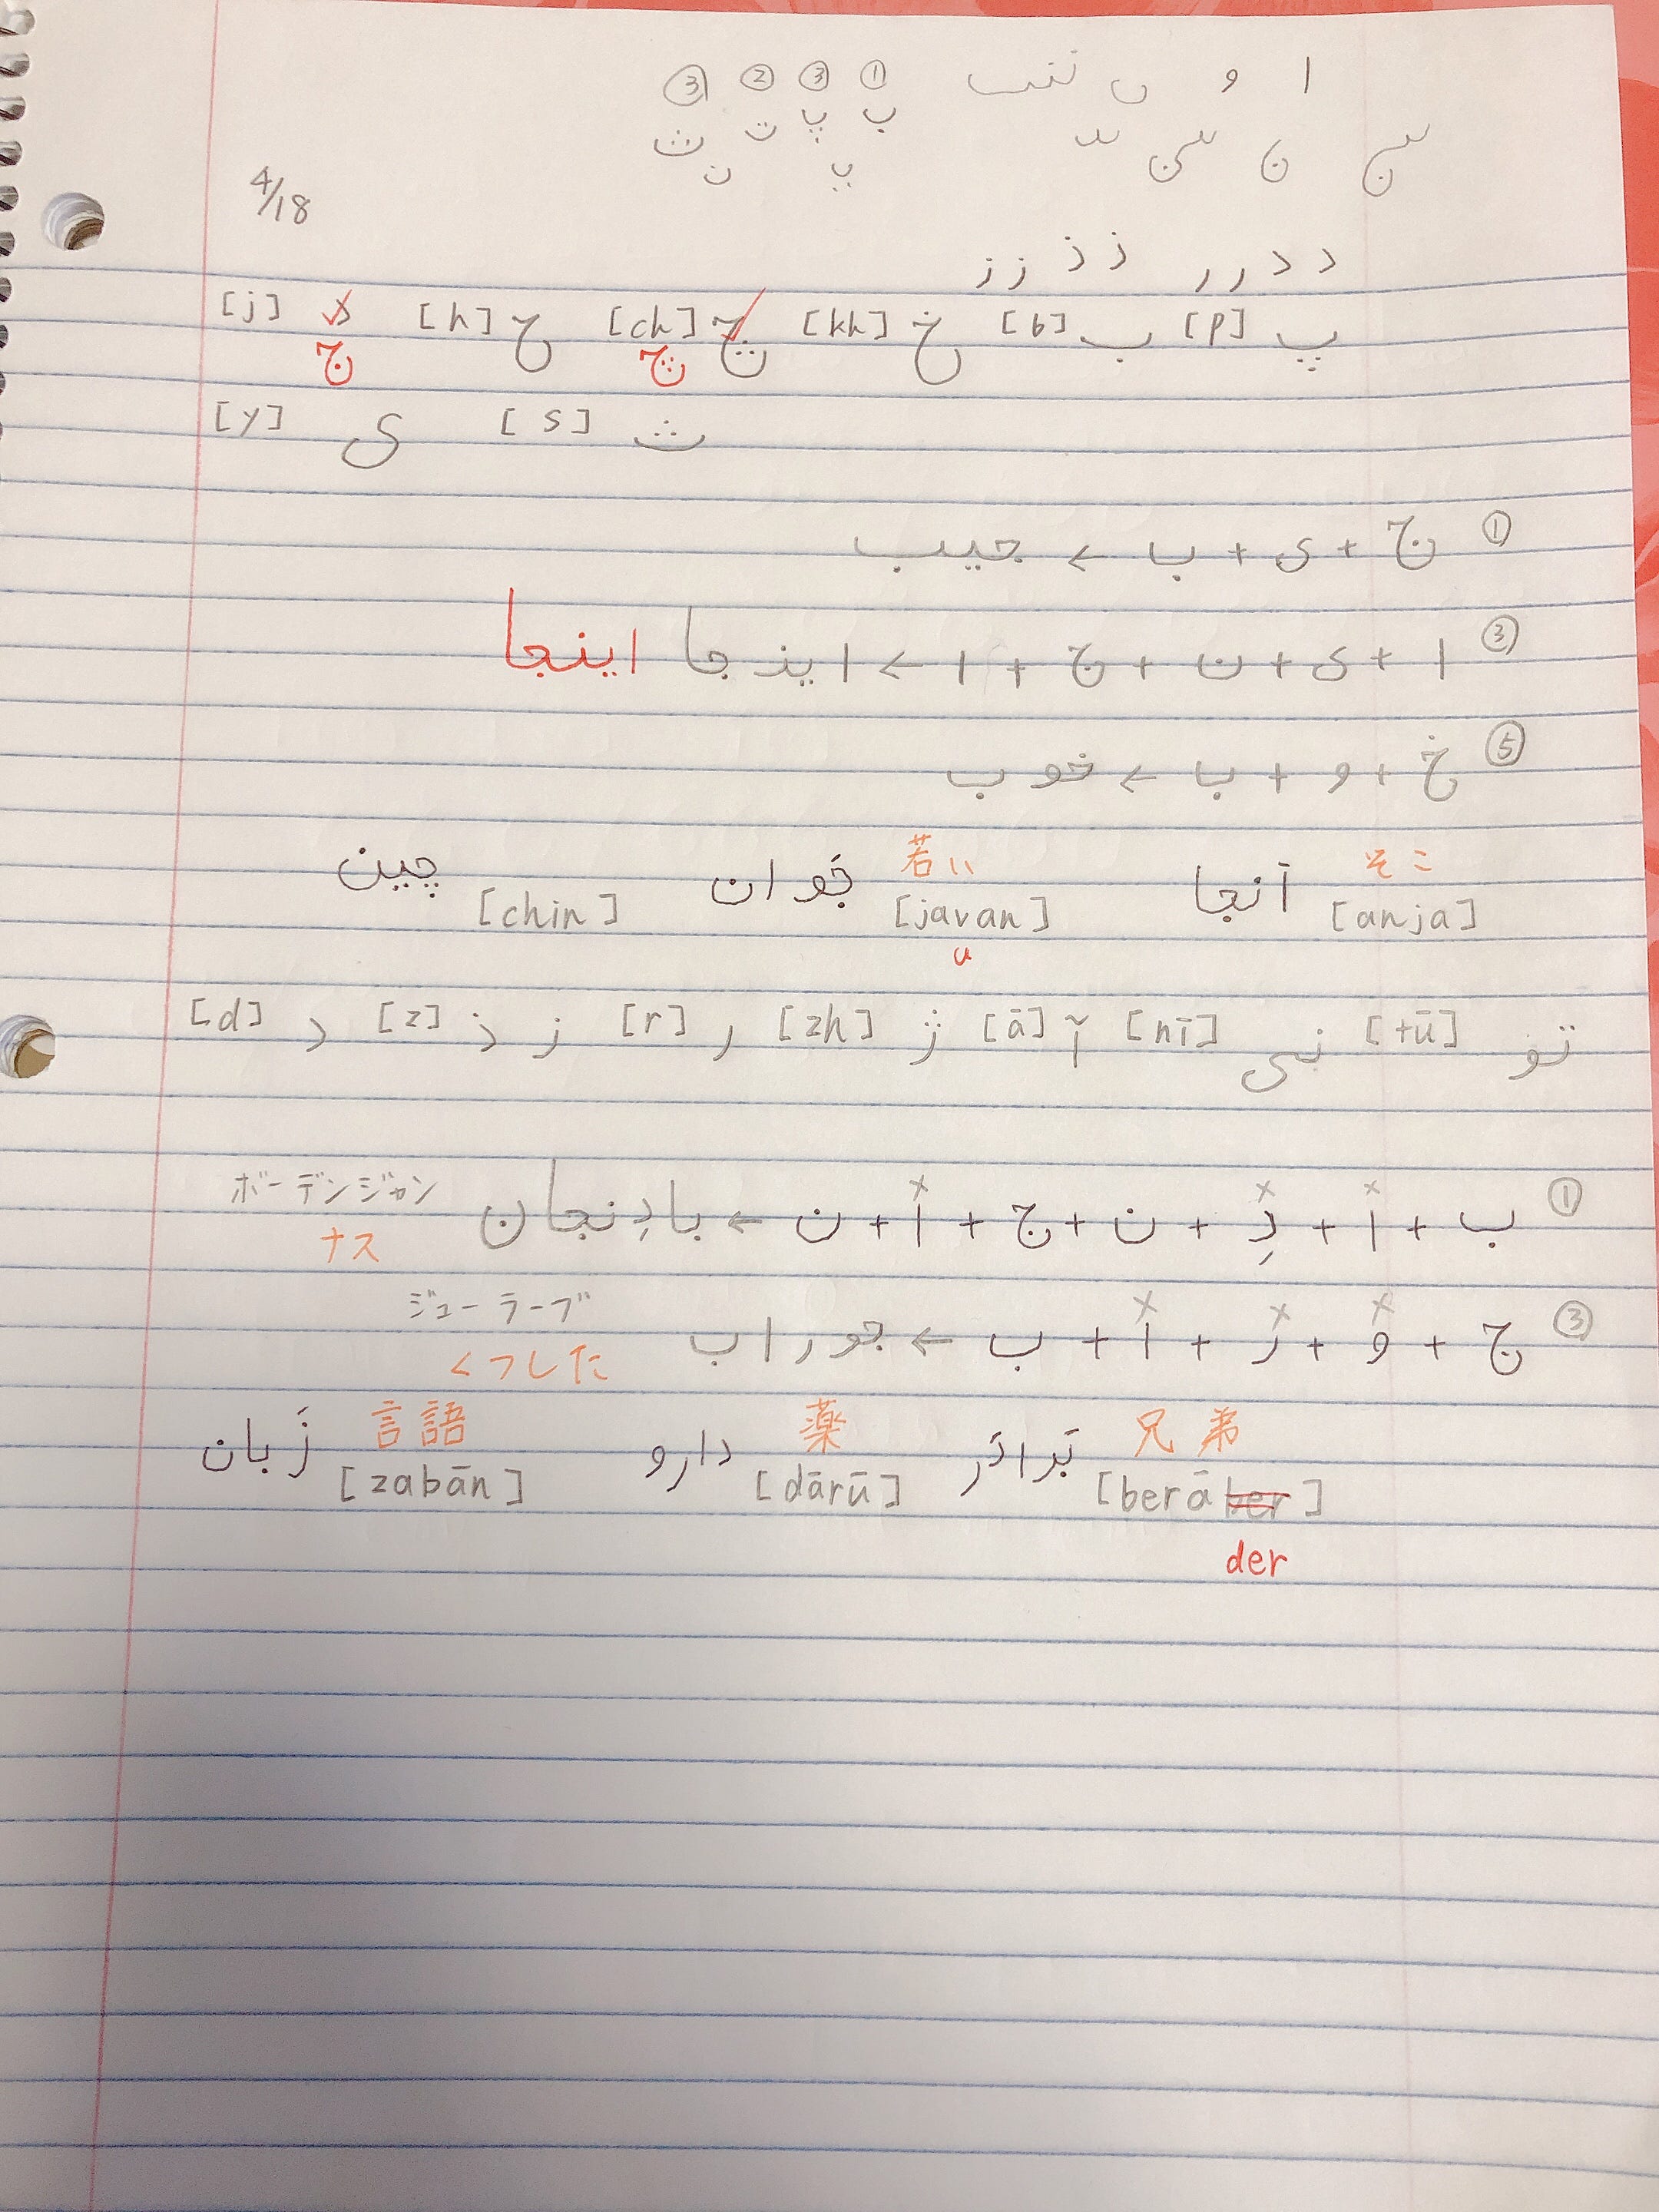 ا و ں تتب ① ③ ② ③
ب پ ت ث
ن
4/18
د د ر ر ذ ذ ز ز
پ [p] ب [b] خ [kh] چ [ch] ح [h] [j]
چ ج
ث [s] ی [y]
① ج + ی + ب ← جیب
③ ا + ی + ن + ج + ا ← اینجا اینجا
⑤ خ + و + ب ← خوب
そこ 若い
[anja] آنجا [javan] جَوان [chin] چین
u
تو [tū] نی [nī] آ [ā] ژ [zh] ر [r] ز ذ [z] د [d]
① ب + ا + دِ + ن + ج + ا + ن ← بادِنجان ボーデンジャン
x x x
ナス
③ ج + و + ر + ا + ب ← جوراب ジューラーブ
x x x
くつした
兄弟 薬 言語
[berāber] بَرادَر [dārū] دارو [zabān] زَبان
der